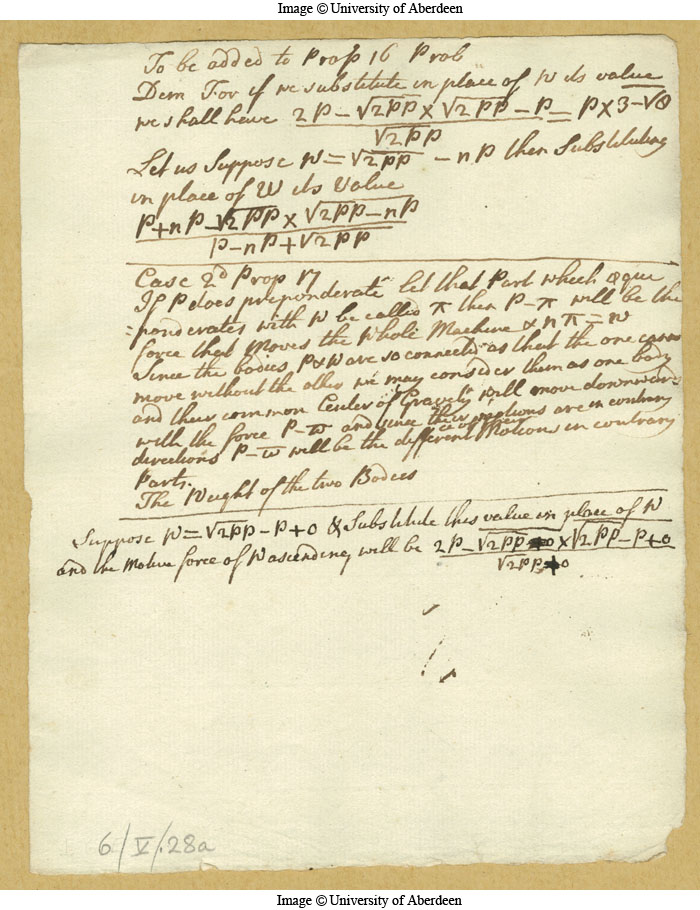 Image © University of Aberdeen
To be added to Prop 16 Prob
Dem For if we substitute in place of W its value
we shall have 2P − √2PP × √2PP − P = P × 3 − √8
√2PP
Let us Suppose W = √2PP − nP then Substituting
in place of W its Value
P + nP − √2PP × √2PP − nP
P − nP + √2PP
Case 2d Prop 17
If P does preponderate let that Part which æque
=ponderates with W be called π then P − π will be the
force that Moves the Whole Machine & nπ = w
Since the bodies P & W are so connected as that the one cannot
move without the other we may consider them as one body
and their common Center of Gravity will move downward
with the force P − w and since their motions are in contrary
directions P − w will be the different Motions in contrary
Parts.
The Weight of the two Bodies
Suppose W = √2PP − P + o & Substitute this value in place of W
and the Motive force of W ascending will be 2P − √2PP + o × √2PP − P + o
√2PP + o
6/V/28a
Image © University of Aberdeen